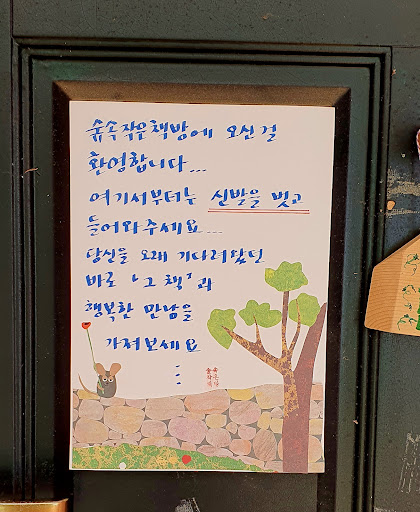 숲속작은책방에 오신걸
환영합니다...
여기서부터는 신발을 벗고
들어와주세요...
당신을 오래 기다려왔던
바로 '그 책'과
행복한 만남을
가져보세요
...